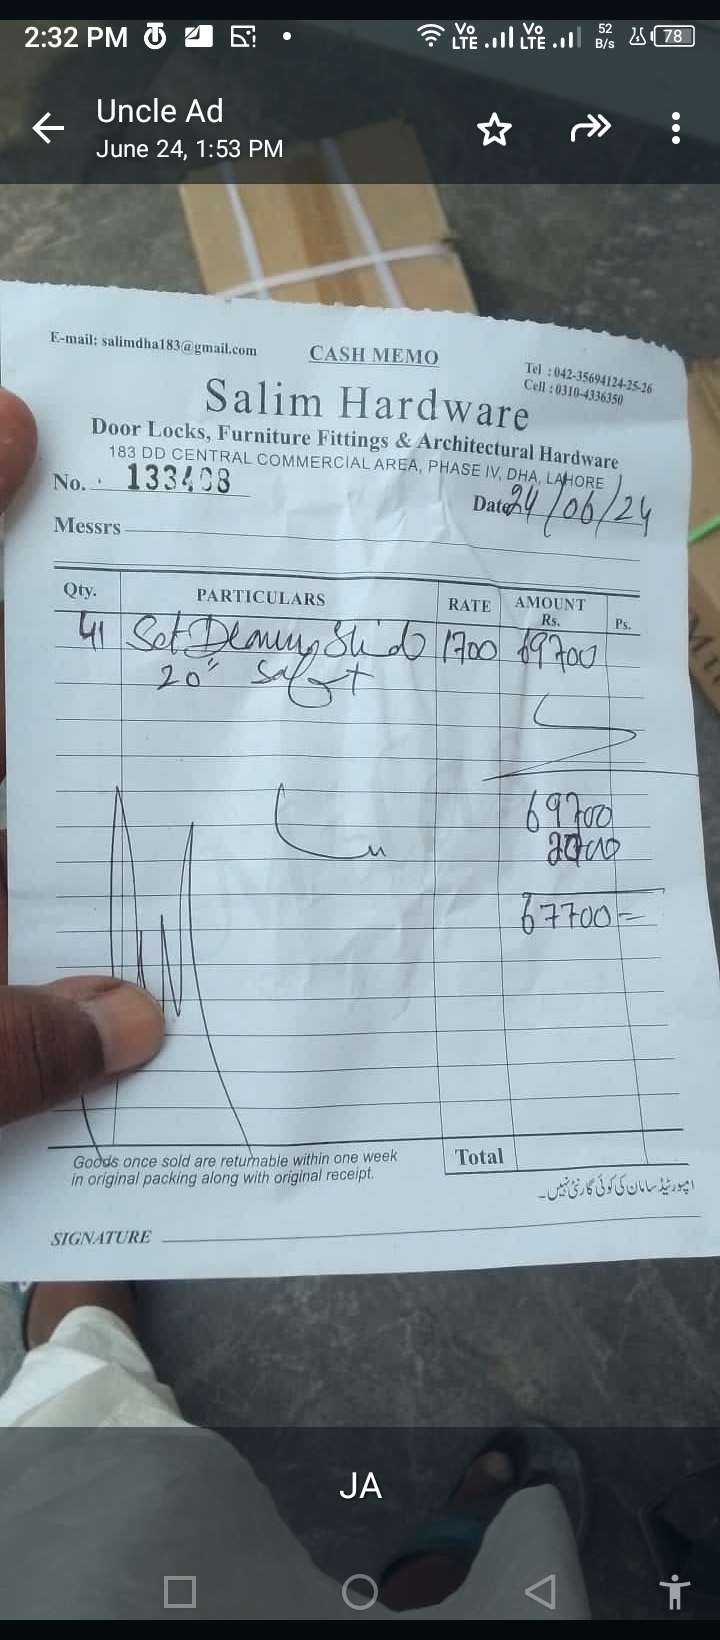 2:32 PM Vo LTE Vo LTE 52 B/s 78
Uncle Ad
June 24, 1:53 PM
E-mail: salimdha183@gmail.com
CASH MEMO
Tel : 042-35694124-25-26
Cell : 0310-4336350
Salim Hardware
Door Locks, Furniture Fittings & Architectural Hardware
183 DD CENTRAL COMMERCIAL AREA, PHASE IV, DHA, LAHORE
No. 133408
Date 24/06/24
Messrs
Qty. PARTICULARS RATE AMOUNT Rs. Ps.
41 Set 1700 69700
20"
69700
2000
67700=
Goods once sold are returnable within one week
in original packing along with original receipt.
Total
امپورٹیڈ سامان کی کوئی گارنٹی نہیں۔
SIGNATURE
JA